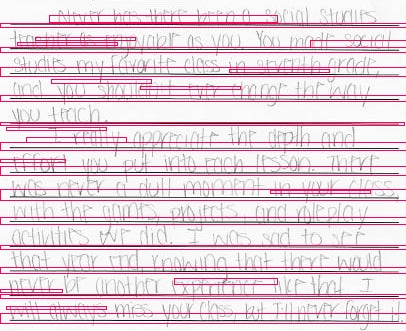 Never has there been a social studies
teacher as enjoyable as you. You made social
studies my favorite class in seventh grade,
and you shouldn't ever change the way
you teach.
I really appreciate the depth and
effort you put into each lesson. There
was never a dull moment in your class,
with the games, projects, and roleplay
activities we did. I was sad to see
that year end knowing that there would
never be another experience like that. I
will always miss your class, but I'll never forget it.